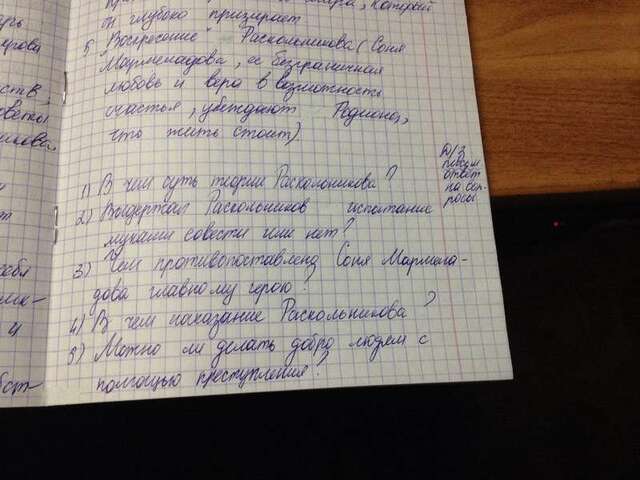 он глубоко призирает
5. "Воскресение" Раскольникова (Соня
Мармеладова, ее безграничная
любовь и вера в возможность
счастья, убеждают Родиона,
что жить стоит).
Д/З
письм
ответ
на воп-
росы
1) В чем суть теории Раскольникова?
2) Выдержал Раскольников испытание
муками совести или нет?
3) Чем противопоставлена Соня Мармела-
дова главному герою?
4) В чем наказание Раскольникова?
5) Можно ли делать добро людям с
помощью преступления?